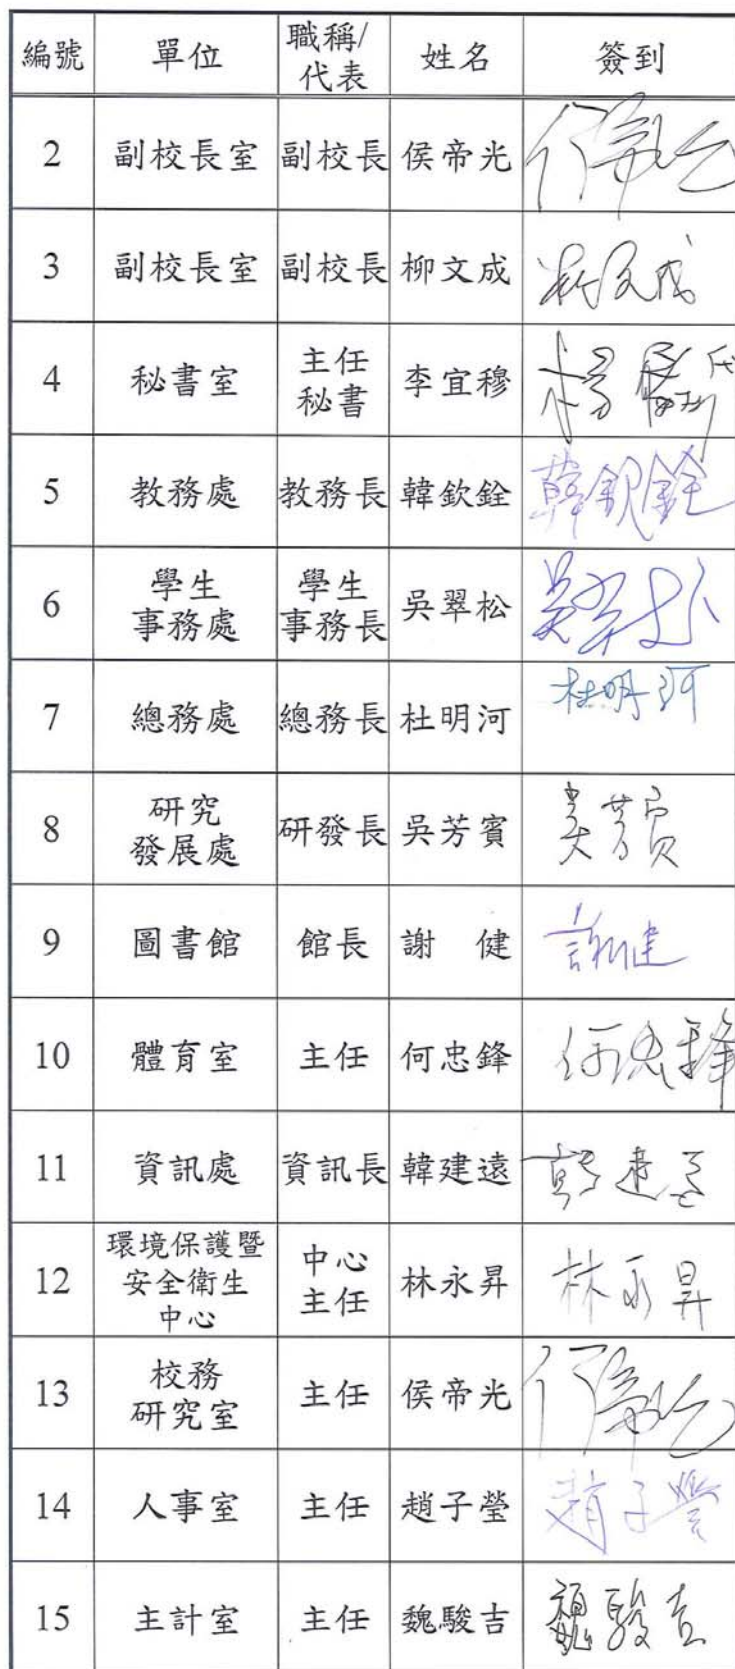 編號 單位 職稱/代表 姓名 簽到
2 副校長室 副校長 侯帝光
3 副校長室 副校長 柳文成 柳文成
4 秘書室 主任秘書 李宜穆
5 教務處 教務長 韓欽銓 韓欽銓
6 學生事務處 學生事務長 吳翠松 吳翠松
7 總務處 總務長 杜明河 杜明河
8 研究發展處 研發長 吳芳賓 吳芳賓
9 圖書館 館長 謝 健 謝健
10 體育室 主任 何忠鋒 何忠鋒
11 資訊處 資訊長 韓建遠 韓建遠
12 環境保護暨安全衛生中心 中心主任 林永昇 林永昇
13 校務研究室 主任 侯帝光
14 人事室 主任 趙子瑩 趙子瑩
15 主計室 主任 魏駿吉 魏駿吉